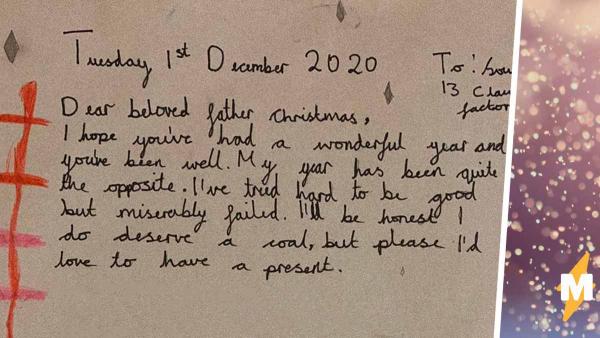 Tuesday 1st December 2020
To:
13
factor
Dear beloved father christmas,
I hope you've had a wonderful year and
you've been well. My year has been quite
the opposite. I've tried hard to be good
but miserably failed. I'll be honest I
do deserve a coal, but please I'd
love to have a present.
M